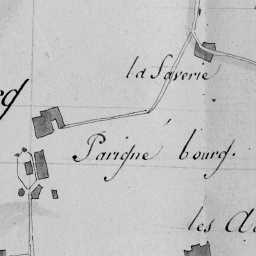 la Saverie
Parigné bourg.
les